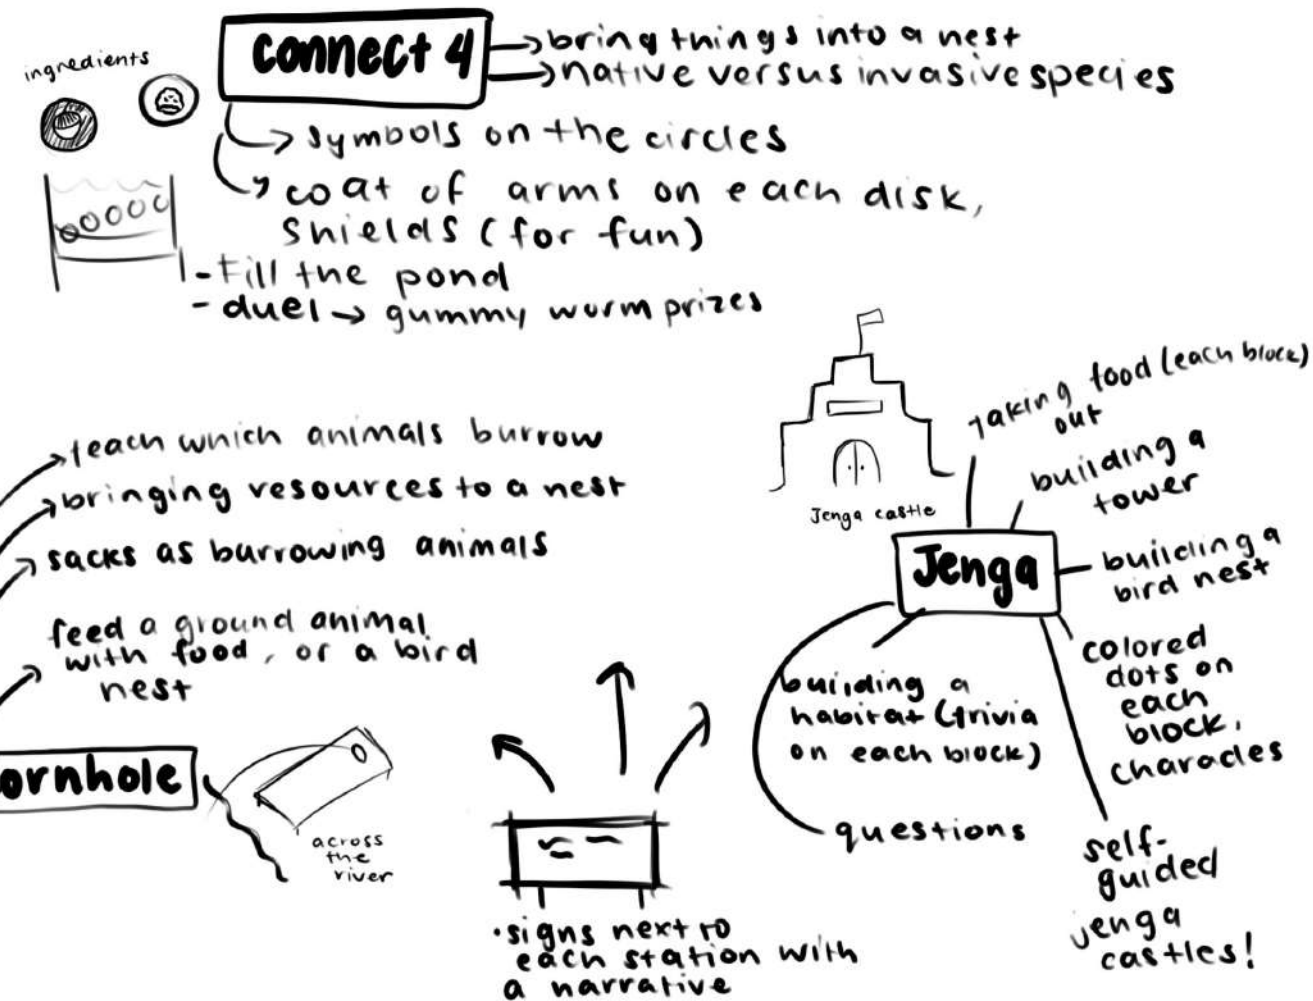 ingredients
connect 4
bring things into a nest
native versus invasive species
symbols on the circles
coat of arms on each disk,
shields (for fun)
- fill the pond
- duel → gummy worm prizes
teach which animals burrow
bringing resources to a nest
sacks as burrowing animals
feed a ground animal
with food, or a bird
nest
ornhole
across
the
river
• signs next to
each station with
a narrative
Jenga castle
Jenga
taking food (each block)
out
building a
tower
building a
bird nest
colored
dots on
each
block,
charades
self-
guided
jenga
castles!
building a
habitat (trivia
on each block)
questions